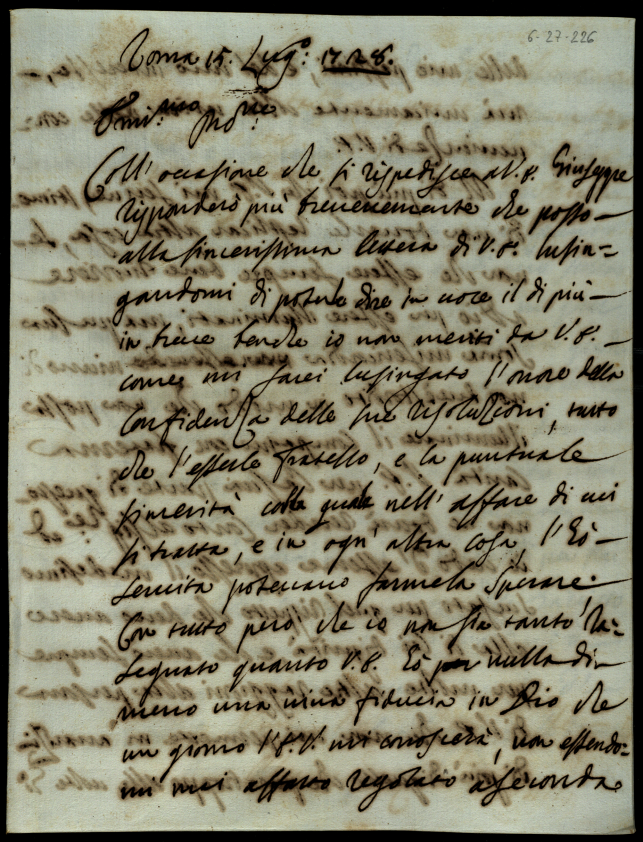 6-27-226
Roma 15. Lug.º 1728.
Em.mo
Coll' occasione che si rispedisce a V.E. Giuseppe
risponderò più brevemente che posso
alla sincerissima lettera di V.E. lusin=
gandomi di poterle dire in voce il di più
in breve benche io non meriti da V.E.
come mi sarei lusingato l'onore della
Confidenza delle sue risoluzioni, tutto
che l'esserle fratello, e la puntuale
sincerità colla quale nell' affare di cui
si tratta, e in ogn' altra cosa, l' hò
servita potevano farmela sperare.
Con tutto però che io non sia tanto ras=
segnato quanto V.E. hò nulla di
meno una viva fiducia in Dio che
un giorno l'E.V. mi conoscerà, non essendo=
mi mai affatto regolato a seconda